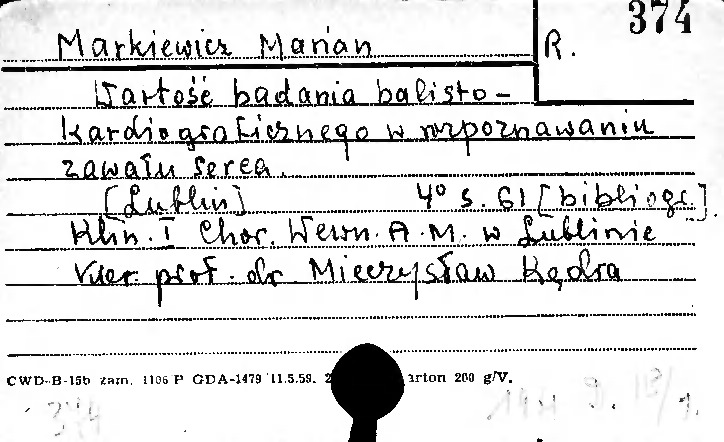 374
Markiewicz Marian R.
Wartość badania balisto-
kardiograficznego w rozpoznawaniu
zawału serca.
[Lublin] 4° s. 61 [bibliogr.].
Klin. I Chor. Wewn. A. M. w Lublinie
Kier. prof. dr Mieczysław Kędra
CWD-B-15b zam. 1106 P GDA-1479 11.5.59. 2 arton 200 g/V.
374